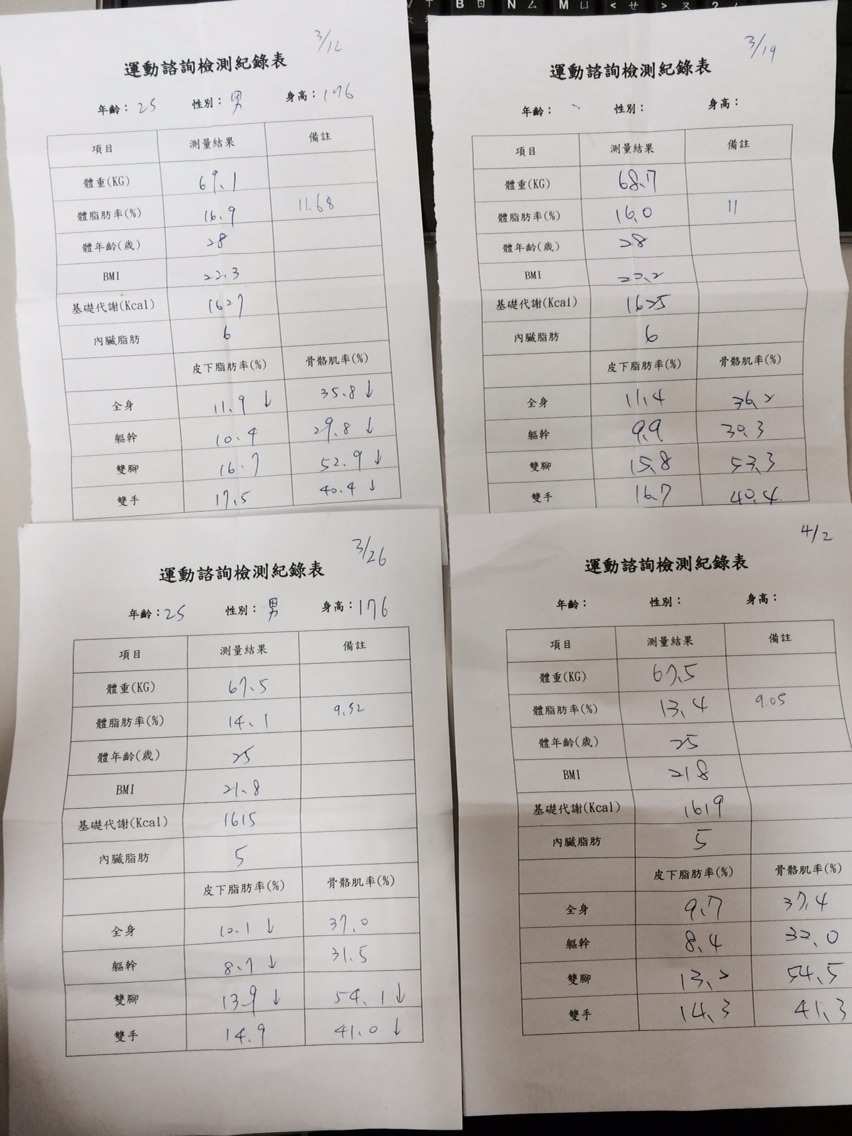 B ㄖ N ㄙ M ㄩ < ㄝ > ㄡ ?
3/12
運動諮詢檢測紀錄表
年齡：25 性別：男 身高：176
項目 測量結果 備註
體重(KG) 69.1
體脂肪率(%) 16.9 11.68
體年齡(歲) 28
BMI 22.3
基礎代謝(Kcal) 1627
內臟脂肪 6
皮下脂肪率(%) 骨骼肌率(%)
全身 11.9 ↓ 35.8 ↓
軀幹 10.4 29.8 ↓
雙腳 16.7 52.9 ↓
雙手 17.5 40.4 ↓
3/19
運動諮詢檢測紀錄表
年齡： 性別： 身高：
項目 測量結果 備註
體重(KG) 68.7
體脂肪率(%) 16.0 11
體年齡(歲) 28
BMI 22.2
基礎代謝(Kcal) 1625
內臟脂肪 6
皮下脂肪率(%) 骨骼肌率(%)
全身 11.4 36.2
軀幹 9.9 30.3
雙腳 15.8 53.3
雙手 16.7 40.4
3/26
運動諮詢檢測紀錄表
年齡：25 性別：男 身高：176
項目 測量結果 備註
體重(KG) 67.5
體脂肪率(%) 14.1 9.52
體年齡(歲) 25
BMI 21.8
基礎代謝(Kcal) 1615
內臟脂肪 5
皮下脂肪率(%) 骨骼肌率(%)
全身 10.1 ↓ 37.0
軀幹 8.7 ↓ 31.5
雙腳 13.9 ↓ 54.1 ↓
雙手 14.9 41.0 ↓
4/2
運動諮詢檢測紀錄表
年齡： 性別： 身高：
項目 測量結果 備註
體重(KG) 67.5
體脂肪率(%) 13.4 9.05
體年齡(歲) 25
BMI 21.8
基礎代謝(Kcal) 1619
內臟脂肪 5
皮下脂肪率(%) 骨骼肌率(%)
全身 9.7 37.4
軀幹 8.4 32.0
雙腳 13.2 54.5
雙手 14.3 41.3